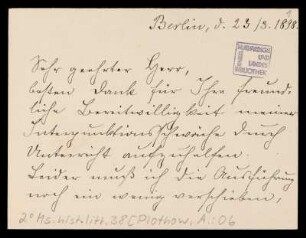 Berlin, d. 23/3. 1898.
MURHARDSCHE
UND
LANDES
BIBLIOTHEK
Sehr geehrter Herr,
besten Dank für Ihre freund-
liche Bereitwilligkeit meiner
Interpunktionsschwäche durch
Unterricht aufzuhelfen.
Leider muß ich die Ausführung
noch ein wenig verschieben,
2° Ms. hist. litt. 38 [Plothow, A.: 06